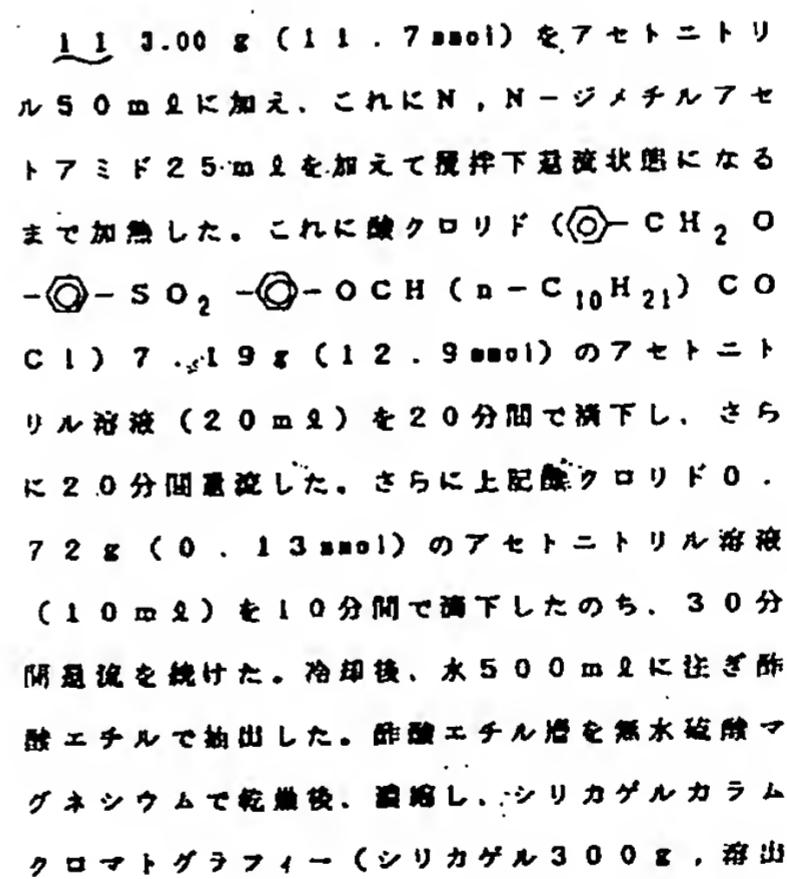 11 3.00g(11.7mmol)をアセトニトリ
ル50mlに加え、これにN,N-ジメチルアセ
トアミド25mlを加えて攪拌下還流状態になる
まで加熱した。これに酸クロリド(-CH2O
--SO2--OCH(n-C10H21)CO
Cl)7.19g(12.9mmol)のアセトニト
リル溶液(20ml)を20分間で滴下し、さら
に20分間還流した。さらに上記酸クロリド0.
72g(0.13mmol)のアセトニトリル溶液
(10ml)を10分間で滴下したのち、30分
間還流を続けた。冷却後、水500mlに注ぎ酢
酸エチルで抽出した。酢酸エチル層を無水硫酸マ
グネシウムで乾燥後、濃縮し、シリカゲルカラム
クロマトグラフィー(シリカゲル300g,溶出